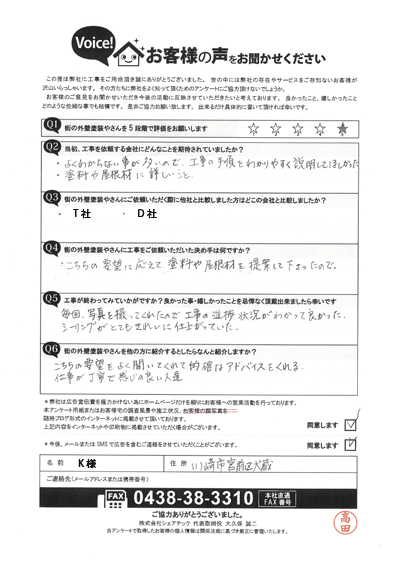 Voice!
お客様の声をお聞かせください
この度は弊社に工事をご用命頂き誠にありがとうございました。世の中には弊社の存在やサービスをご存知ないお客様が
沢山いらっしゃいます。その方たちに弊社をよく知って頂くためのアンケートにご協力頂けないでしょうか。
お客様のご意見をお聞かせいただき今後の活動に反映させていただきたいと考えております。良かったこと、嬉しかったこと
どのような些細な事でも結構です。是非ご協力お願い致します。出来るだけ具体的に書いて頂ければ幸いです。
Q1 街の外壁塗装やさんを5段階で評価をお願いします
☆ ☆ ☆ ☆ ★
Q2 当初、工事を依頼する会社にどんなことを期待されていましたか?
・よくわからない事が多いので、工事の手順をわかりやすく説明してほしかった
・塗料や屋根材に詳しいこと。
Q3 街の外壁塗装やさんにご依頼いただく際に他社と比較しました方はどこの会社と比較しましたか?
・ T社 ・ D社
Q4 街の外壁塗装やさんに工事をご依頼いただいた決め手は何ですか?
・こちらの要望に応えて、塗料や屋根材を提案して下さったので。
Q5 工事が終わってみていかがですか?良かった事・嬉しかったことを忌憚なく頂戴出来ましたら幸いです
毎回、写真を撮ってくれたので工事の進捗状況がわかって良かった。
シーリングがとてもきれいに仕上がっていた。
Q6 街の外壁塗装やさんを他の方に紹介するとしたらなんと紹介しますか?
こちらの要望をよく聞いてくれて的確なアドバイスをくれる。
仕事が丁寧で感じの良い人達
*弊社は広告宣伝費を極力かけない為にホームページだけを頼りにお客様への営業活動を行っております。
本アンケート用紙またはお客様宅の調査風景や施工状況、お客様の顔写真を
随時ブログ形式のインターネットに掲載させて頂いております。
上記内容をインターネットや印刷物に掲載させていただく場合がございます。 同意します
*今後、メールまたはSMSで広告を含むご連絡をさせていただくことがございます。 同意します
名前 K様 住所 川崎市宮前区犬蔵
ご連絡先(メールアドレスまたは携帯番号)
FAX 0438-38-3310 本社直通 FAX番号
ご協力ありがとうございました。
株式会社シェアテック 代表取締役 大久保 誠二
当アンケートで取得したお客様の個人情報は関係法規に基づき厳正に管理いたします。
高田